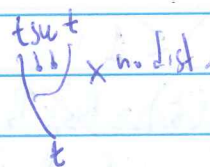 tsu t
x no dist.
t